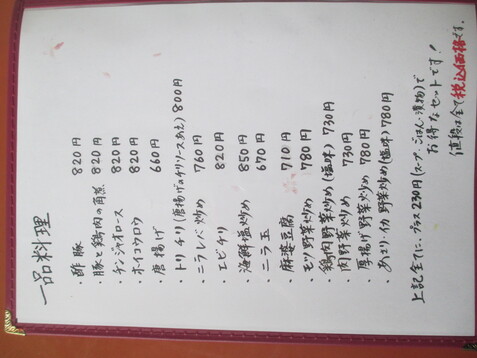 一品料理
・酢豚 820円
・豚と鶏肉の角煮 820円
・チンジャオロース 820円
・ホイコウロウ 820円
・唐揚げ 660円
・トリチリ(唐揚げのチリソースあえ) 800円
・ニラレバ炒め 760円
・エビチリ 820円
・海鮮塩炒め 850円
・ニラ玉 670円
・麻婆豆腐 710円
・モツ野菜炒め 780円
・鶏肉野菜炒め(塩味) 730円
・肉野菜炒め 730円
・厚揚げ野菜炒め 780円
・あさり・イカ野菜炒め(塩味) 780円
上記全てに、プラス230円(スープ、ごはん、漬物)で
お得なセットです!
値段は全て税込価格です。